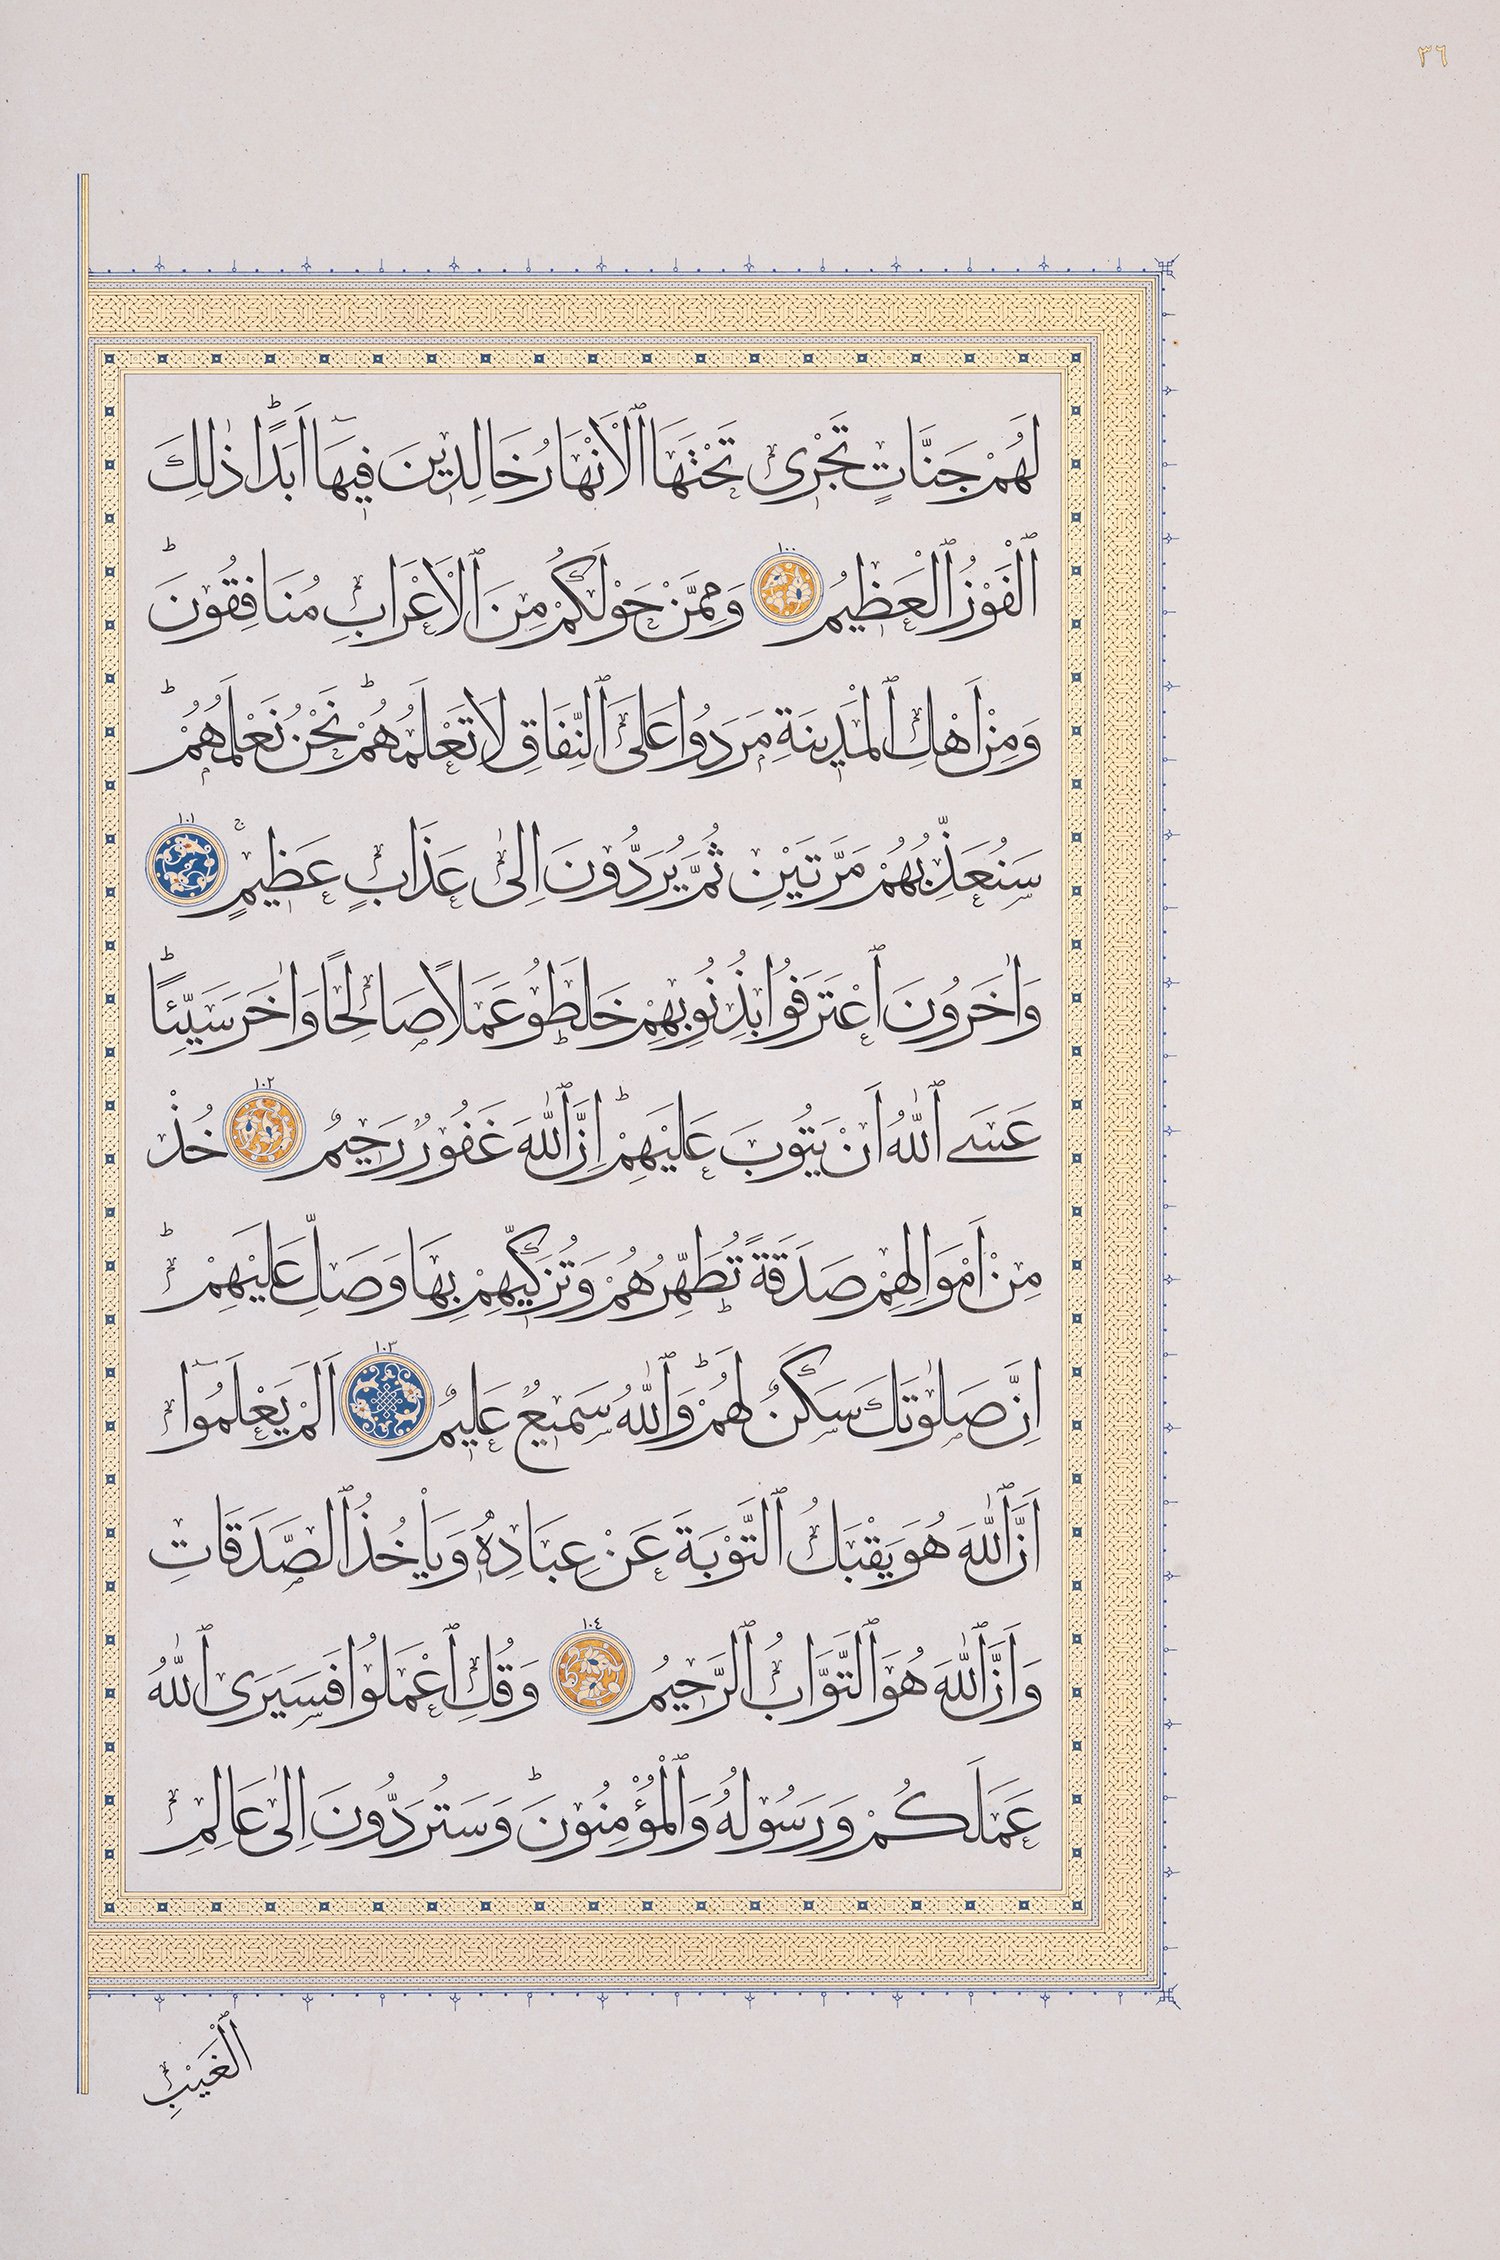 ٣٦
لَهُمْ جَنَّاتٍ تَجْرٖى تَحْتَهَا ٱلْاَنْهَارُ خَالِدٖينَ فٖيهَٓا اَبَدًاؕ ذٰلِكَ
ٱلْفَوْزُ ٱلْعَظٖيمُ ١٠٠ وَمِمَّنْ حَوْلَكُمْ مِنَ ٱلْاَعْرَابِ مُنَافِقُونَؕ
وَمِنْ اَهْلِ ٱلْمَدٖينَةِ مَرَدُوا عَلَى ٱلنِّفَاقِ لَا تَعْلَمُهُمْؕ نَحْنُ نَعْلَمُهُمْؕ
سَنُعَذِّبُهُمْ مَرَّتَيْنِ ثُمَّ يُرَدُّونَ اِلٰى عَذَابٍ عَظٖيمٍۚ ١٠١
وَاٰخَرُونَ ٱعْتَرَفُوا بِذُنُوبِهِمْ خَلَطُوا عَمَلًا صَالِحًا وَاٰخَرَ سَيِّئًاؕ
عَسَى ٱللّٰهُ اَنْ يَتُوبَ عَلَيْهِمْؕ اِنَّ ٱللّٰهَ غَفُورٌ رَحٖيمٌ ١٠٢ خُذْ
مِنْ اَمْوَالِهِمْ صَدَقَةً تُطَهِّرُهُمْ وَتُزَكّٖيهِمْ بِهَا وَصَلِّ عَلَيْهِمْؕ
اِنَّ صَلٰوتَكَ سَكَنٌ لَهُمْؕ وَٱللّٰهُ سَمٖيعٌ عَلٖيمٌ ١٠٣ اَلَمْ يَعْلَمُٓوا
اَنَّ ٱللّٰهَ هُوَ يَقْبَلُ ٱلتَّوْبَةَ عَنْ عِبَادِهٖ وَيَأْخُذُ ٱلصَّدَقَاتِ
وَاَنَّ ٱللّٰهَ هُوَ ٱلتَّوَّابُ ٱلرَّحٖيمُ ١٠٤ وَقُلِ ٱعْمَلُوا فَسَيَرَى ٱللّٰهُ
عَمَلَكُمْ وَرَسُولُهُ وَٱلْمُؤْمِنُونَؕ وَسَتُرَدُّونَ اِلٰى عَالِمِ
ٱلْغَيْبِ